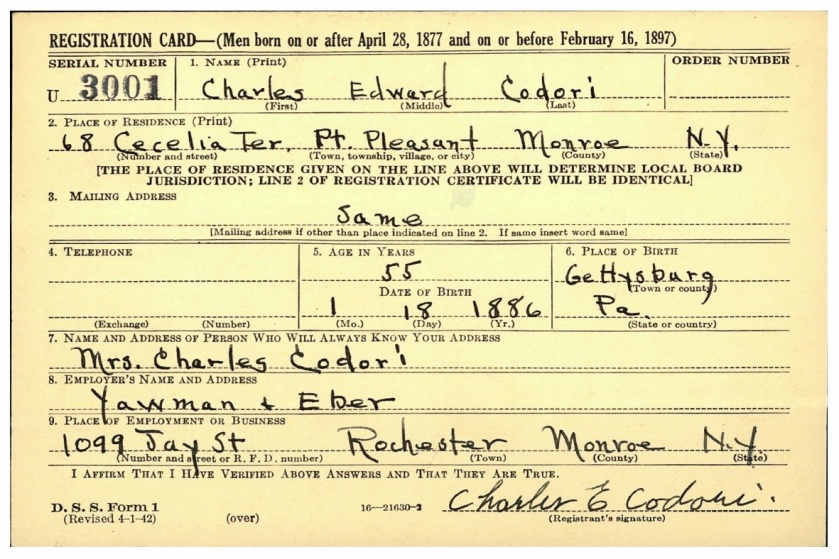 REGISTRATION CARD—(Men born on or after April 28, 1877 and on or before February 16, 1897)
SERIAL NUMBER 1. NAME (Print) ORDER NUMBER
U 3001 Charles Edward Codori
(First) (Middle) (Last)
2. PLACE OF RESIDENCE (Print)
68 Cecelia Ter. Pt. Pleasant Monroe N.Y.
(Number and street) (Town, township, village, or city) (County) (State)
[THE PLACE OF RESIDENCE GIVEN ON THE LINE ABOVE WILL DETERMINE LOCAL BOARD
JURISDICTION; LINE 2 OF REGISTRATION CERTIFICATE WILL BE IDENTICAL]
3. MAILING ADDRESS
Same
[Mailing address if other than place indicated on line 2. If same insert word same]
4. TELEPHONE 5. AGE IN YEARS 6. PLACE OF BIRTH
55 Gettysburg
DATE OF BIRTH (Town or county)
1 18 1886 Pa.
(Exchange) (Number) (Mo.) (Day) (Yr.) (State or country)
7. NAME AND ADDRESS OF PERSON WHO WILL ALWAYS KNOW YOUR ADDRESS
Mrs. Charles Codori
8. EMPLOYER'S NAME AND ADDRESS
Yawman + Eber
9. PLACE OF EMPLOYMENT OR BUSINESS
1099 Jay St Rochester Monroe N.Y.
(Number and street or R. F. D. number) (Town) (County) (State)
I AFFIRM THAT I HAVE VERIFIED ABOVE ANSWERS AND THAT THEY ARE TRUE.
D. S. S. Form 1 16—21630-2 Charles E Codori.
(Revised 4-1-42) (over) (Registrant's signature)